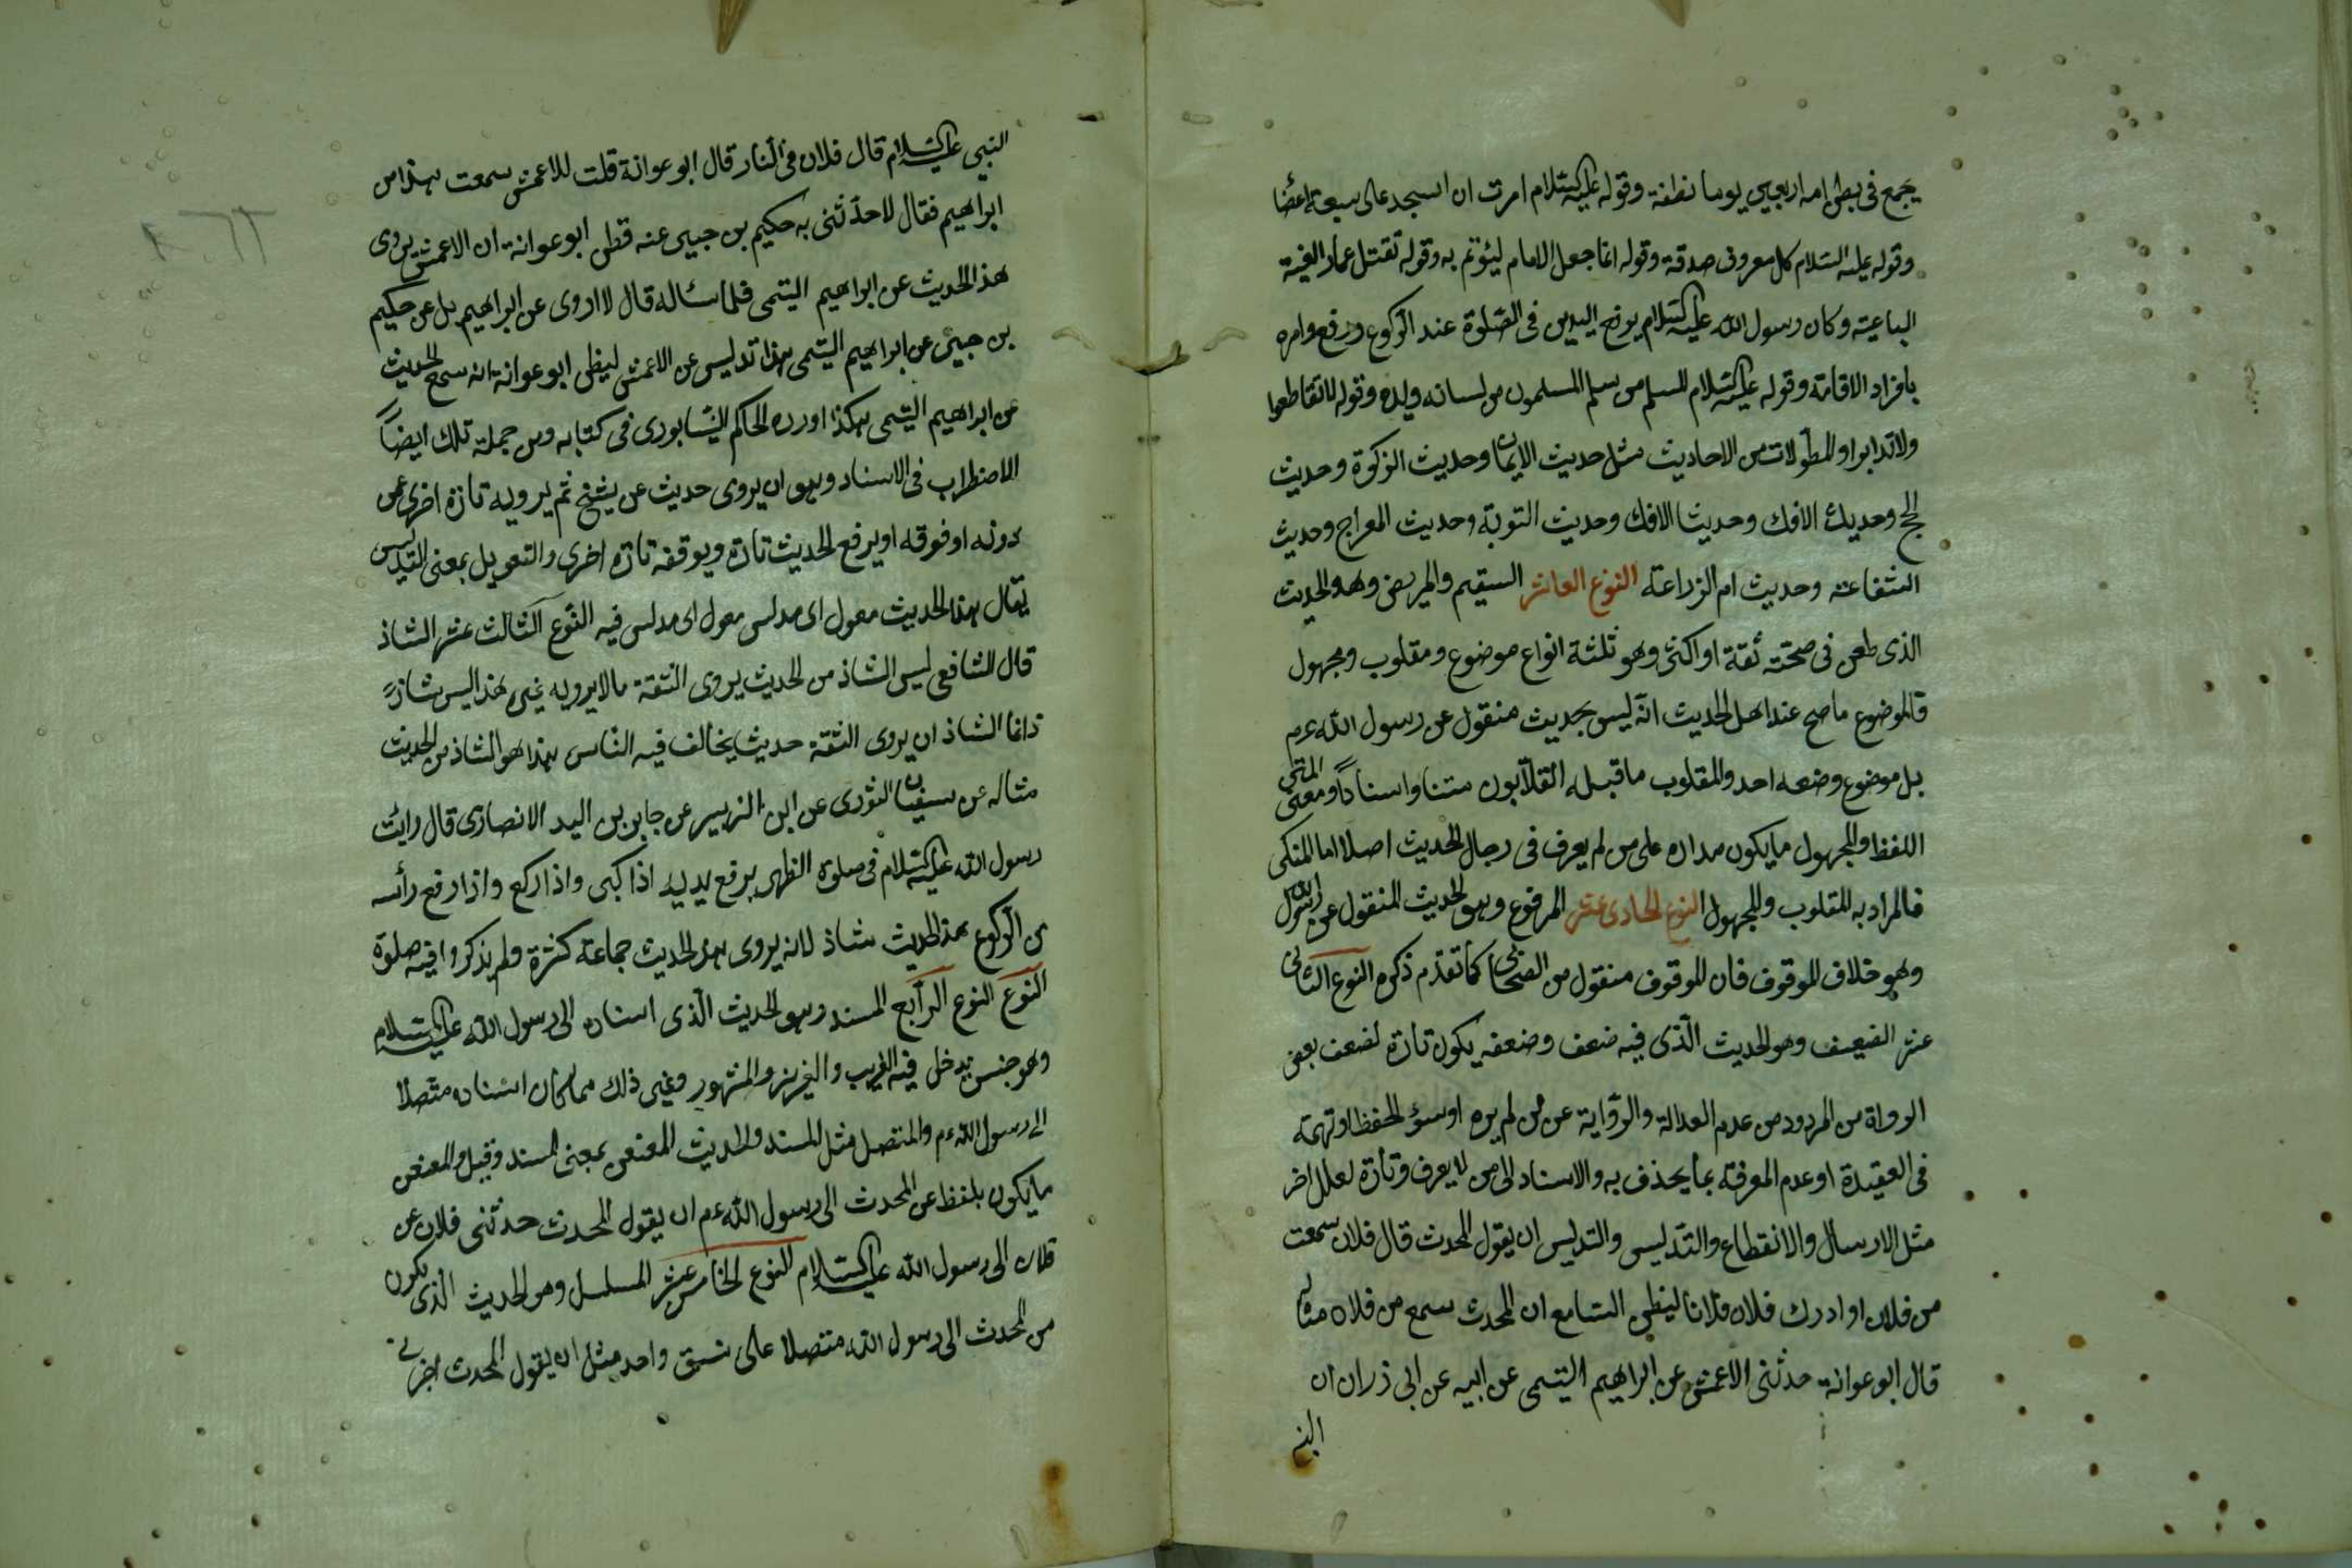 يجمع فى بطن امه اربعين يوما نطفة وقوله عليه السلام امرت ان اسجد على سبعة اعضا
وقوله عليه السلام كل معروف صدقة وقوله انما جعل الامام ليؤتم به وقوله تقتل عمار الفية
الباغية وكان رسول الله عليه السلام يرفع اليدين فى الصلوة عند الركوع ورفع وامره
بافراد الاقامة وقوله عليه السلام المسلم من سلم المسلمون من لسانه ويده وقوله لا تقاطعوا
ولا تدابروا والمطولات من الاحاديث مثل حديث الايمان وحديث الزكوة وحديث
الحج وحديث الافك وحديث الافك وحديث التوبة وحديث المعراج وحديث
الشفاعة وحديث ام الزراعة النوع العاشر السقيم والمريض وهو الحديث
الذى طعن فى صحته ثقة او اكثر وهو ثلثة انواع موضوع ومقلوب ومجهول
فالموضوع ما صح عند اهل الحديث انه ليس بحديث منقول عن رسول الله عم
بل موضوع وضعه احد والمقلوب ما قبله القلابون متنا واسنادا ومعنى المتن
اللفظ والمجهول ما يكون مداره على من لم يعرف فى رجال الحديث اصلا اما المنكر
فالمراد به المقلوب والمجهول النوع الحادى عشر المرفوع وهو الحديث المنقول عن الرسول
وهو خلاف الموقوف فان الموقوف منقول من الصحابى كما تقدم ذكره النوع الثانى
عشر الضعيف وهو الحديث الذى فيه ضعف وضعفه يكون تارة لضعف بعض
الرواة من المردود من عدم العدالة والرواية عن من لم يره او سؤ الحفظ او تهمة
فى العقيدة او عدم المعرفة بما يحذف به والاسناد الى من لا يعرف وتارة لعلل اخر
مثل الارسال والانقطاع والتدليس والتدليس ان يقول المحدث قال فلان سمعت
من فلان او ادرك فلان فلانا ليظن السامع ان المحدث سمع من فلان مثاله
قال ابو عوانة حدثنى الاعمش عن ابراهيم التيمى عن ابيه عن ابى ذر ان ان
النبى
النبى عليه السلام قال فلان فى النار قال ابو عوانة قلت للاعمش سمعت هذا من
ابراهيم فقال لا حدثنى به حكيم بن جبير عنه فظن ابو عوانة ان الاعمش يروى
هذا الحديث عن ابراهيم التيمى فلما سئاله قال لا اروى عن ابراهيم بل عن حكيم
بن جبير عن ابراهيم التيمى هذا تدليس عن الاعمش ليظن ابو عوانة انه سمع الحديث
من ابراهيم التيمى هكذا اورده الحاكم النيشابورى فى كتابه ومن جملة تلك ايضا
الاضطراب فى الاسناد وهو ان يروى حديث عن شيخ ثم يرويه تارة اخرى عن
دونه او فوقه او يرفع الحديث تارة ويوقفه تارة اخرى والتعويل بمعنى التدليس
يقال هذا الحديث معول اى مدلس معول اى مدلس فيه النوع الثالث عشر الشاذ
قال الشافعى ليس الشاذ من الحديث يروى الثقة مالا يرويه غيره هذا ليس شاذ
وانما الشاذ ان يروى الثقة حديث يخالف فيه الناس هذا هو الشاذ من الحديث
مثاله عن سفيان الثورى عن ابن الزبير عن جابر بن اليد الانصارى قال رايت
رسول الله عليه السلام فى صلوة الظهر يرفع يديه اذا كبر واذا ركع واذا رفع رأسه
من الركوع هذا الحديث شاذ لانه يروى هذا الحديث جماعة كثرة ولم يذكروا فيه صلوة
النوع النوع الرابع المسند وهو الحديث الذى اسناده الى رسول الله عليه السلام
وهو جنس يدخل فيه الغريب والعزيز والمشهور وغير ذلك مما كان اسناده متصلا
الى رسول الله عم والمتصل مثل المسند والحديث المعنعن بمعنى المسند وقيل والمعنعن
ما يكون بلفظ عن المحدث الى رسول الله عم ان يقول المحدث حدثنى فلان عن
فلان الى رسول الله عليه السلام النوع الخامس عشر المسلسل وهو الحديث الذى يكون
من المحدث الى رسول الله متصلا على نسق واحد مثل ان يقول المحدث اخبرنى